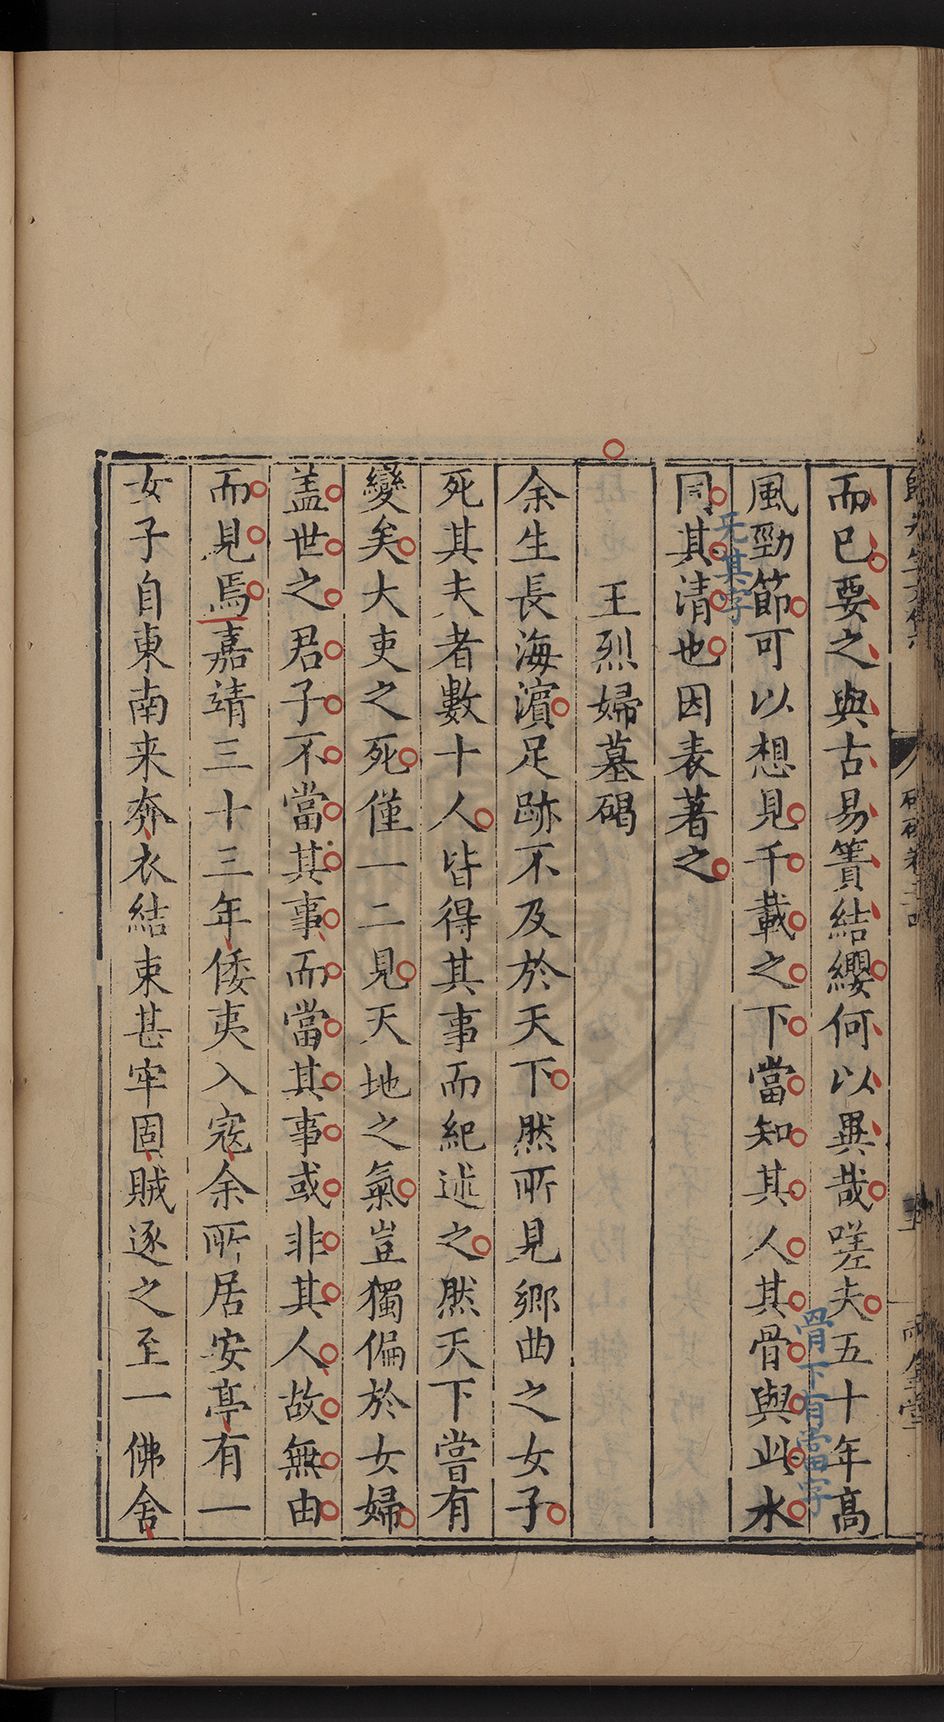 而已要之與古易簀結纓何以異哉嗟夫五十年高
風勁節可以想見千載之下當知其人其骨與此水
骨下有當字
同其清也因表著之
无其字
王烈婦墓碣
余生長海濱足跡不及於天下然所見鄉曲之女子
死其夫者數十人皆得其事而紀述之然天下嘗有
變矣大吏之死僅一二見天地之氣豈獨偏於女婦
盖世之君子不當其事而當其事或非其人故無由
而見焉嘉靖三十三年倭夷入寇余所居安亭有一
女子自東南来奔衣結束甚牢固賊逐之至一佛舍